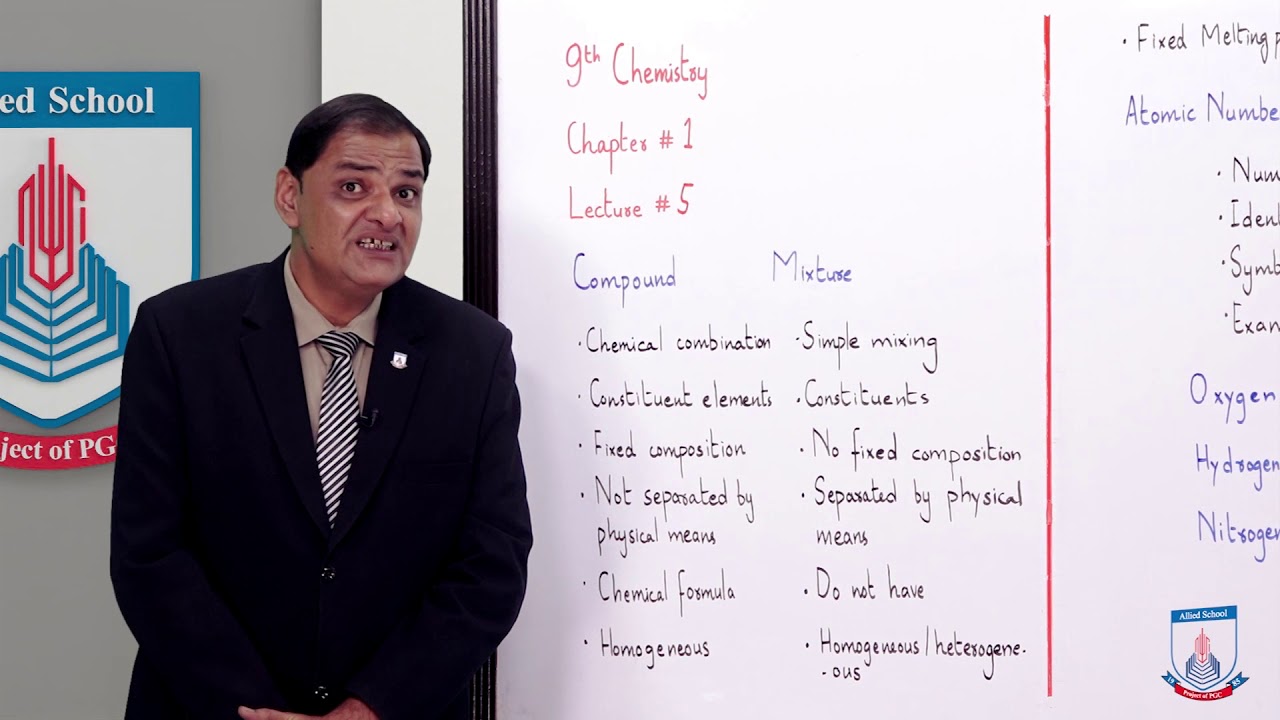 ied School
oject of PGC
9th Chemistry
Chapter # 1
Lecture # 5
Compound Mixture
· Chemical combination · Simple mixing
· Constituent elements · Constituents
· Fixed composition · No fixed composition
· Not separated by · Separated by physical
physical means means
· Chemical formula · Do not have
· Homogeneous · Homogeneous / heterogene-
- ous
· Fixed Melting p
Atomic Numbe
· Num
· Iden
· Symb
· Exam
Oxygen
Hydrogen
Nitrogen
Allied School
1985
Project of PGC